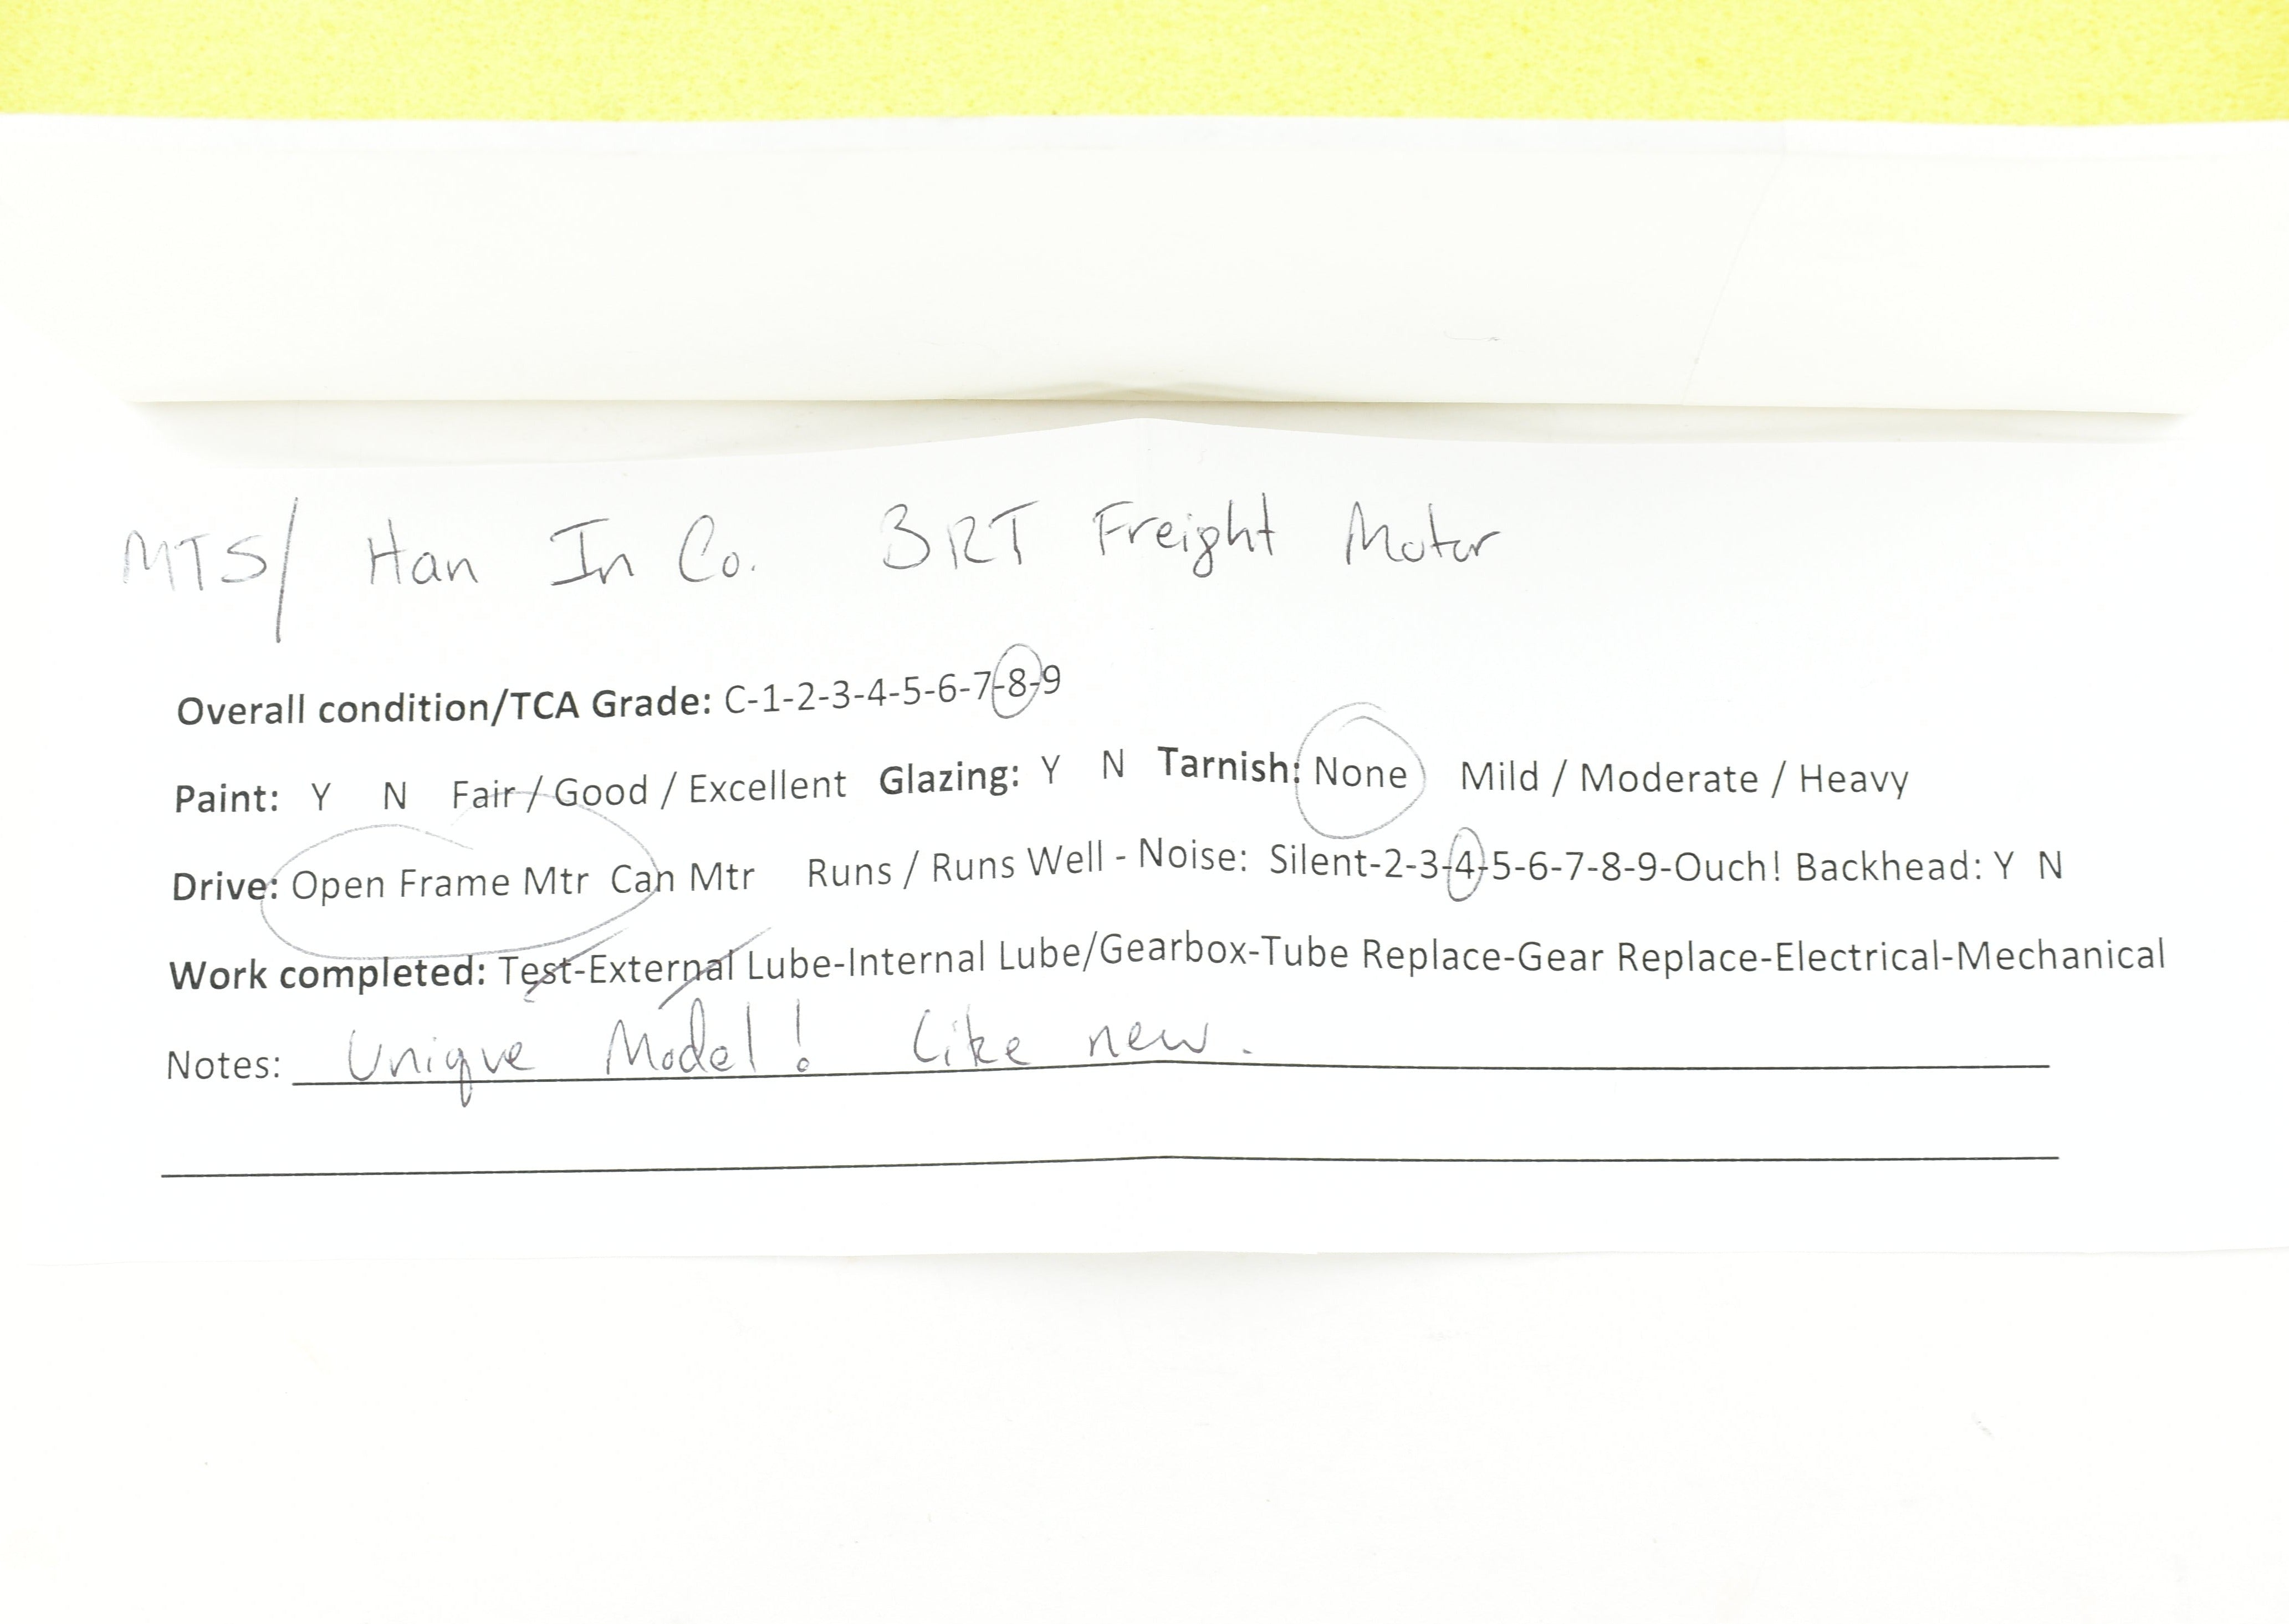 MTS/ Han In Co. BRT Freight Motor
Overall condition/TCA Grade: C-1-2-3-4-5-6-7-8-9
Paint: Y N Fair / Good / Excellent Glazing: Y N Tarnish: None Mild / Moderate / Heavy
Drive: Open Frame Mtr Can Mtr Runs / Runs Well - Noise: Silent-2-3-4-5-6-7-8-9-Ouch! Backhead: Y N
Work completed: Test-External Lube-Internal Lube/Gearbox-Tube Replace-Gear Replace-Electrical-Mechanical
Notes: Unique Model! Like new.